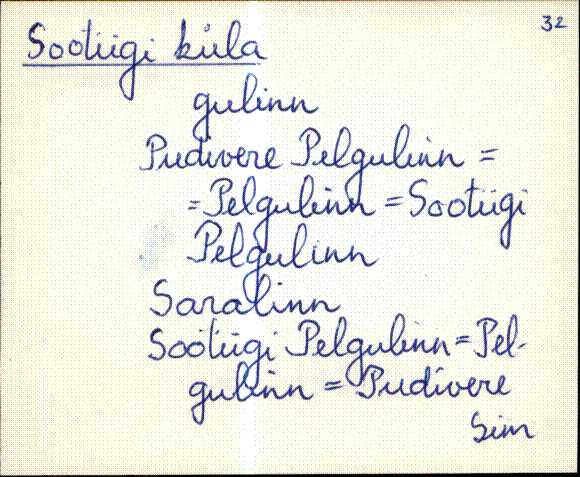 32
Sootiigi küla
gulinn
Pudivere Pelgulinn =
= Pelgulinn = Sootiigi
Pelgulinn
Saralinn
Sootiigi Pelgulinn = Pel-
gulinn = Pudivere
Sim